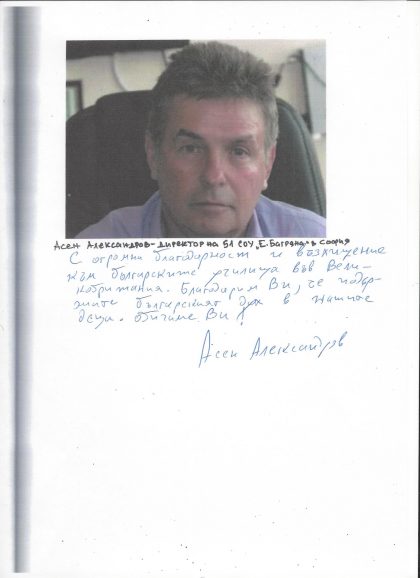 Асен Александров - директор на 51 СОУ „Е. Багряна" в София
С огромни благодарност и възхищение
към българските училища във Вели-
кобритания. Благодарим Ви, че подър-
жате българският дух в нашите
деца. Обичаме Ви!
Асен Александров